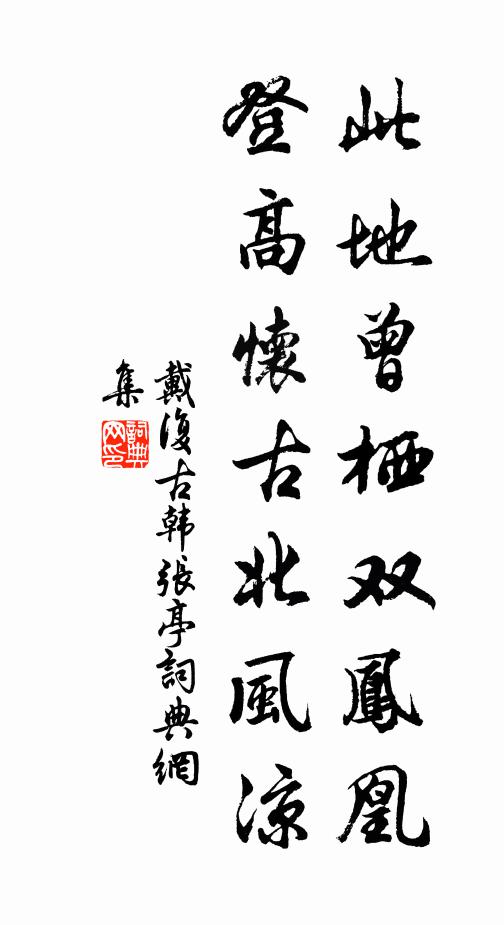 此地曾栖双鳳凰
登高懷古北風凉
戴復古韩張亭詞典網
集
詞典
网印